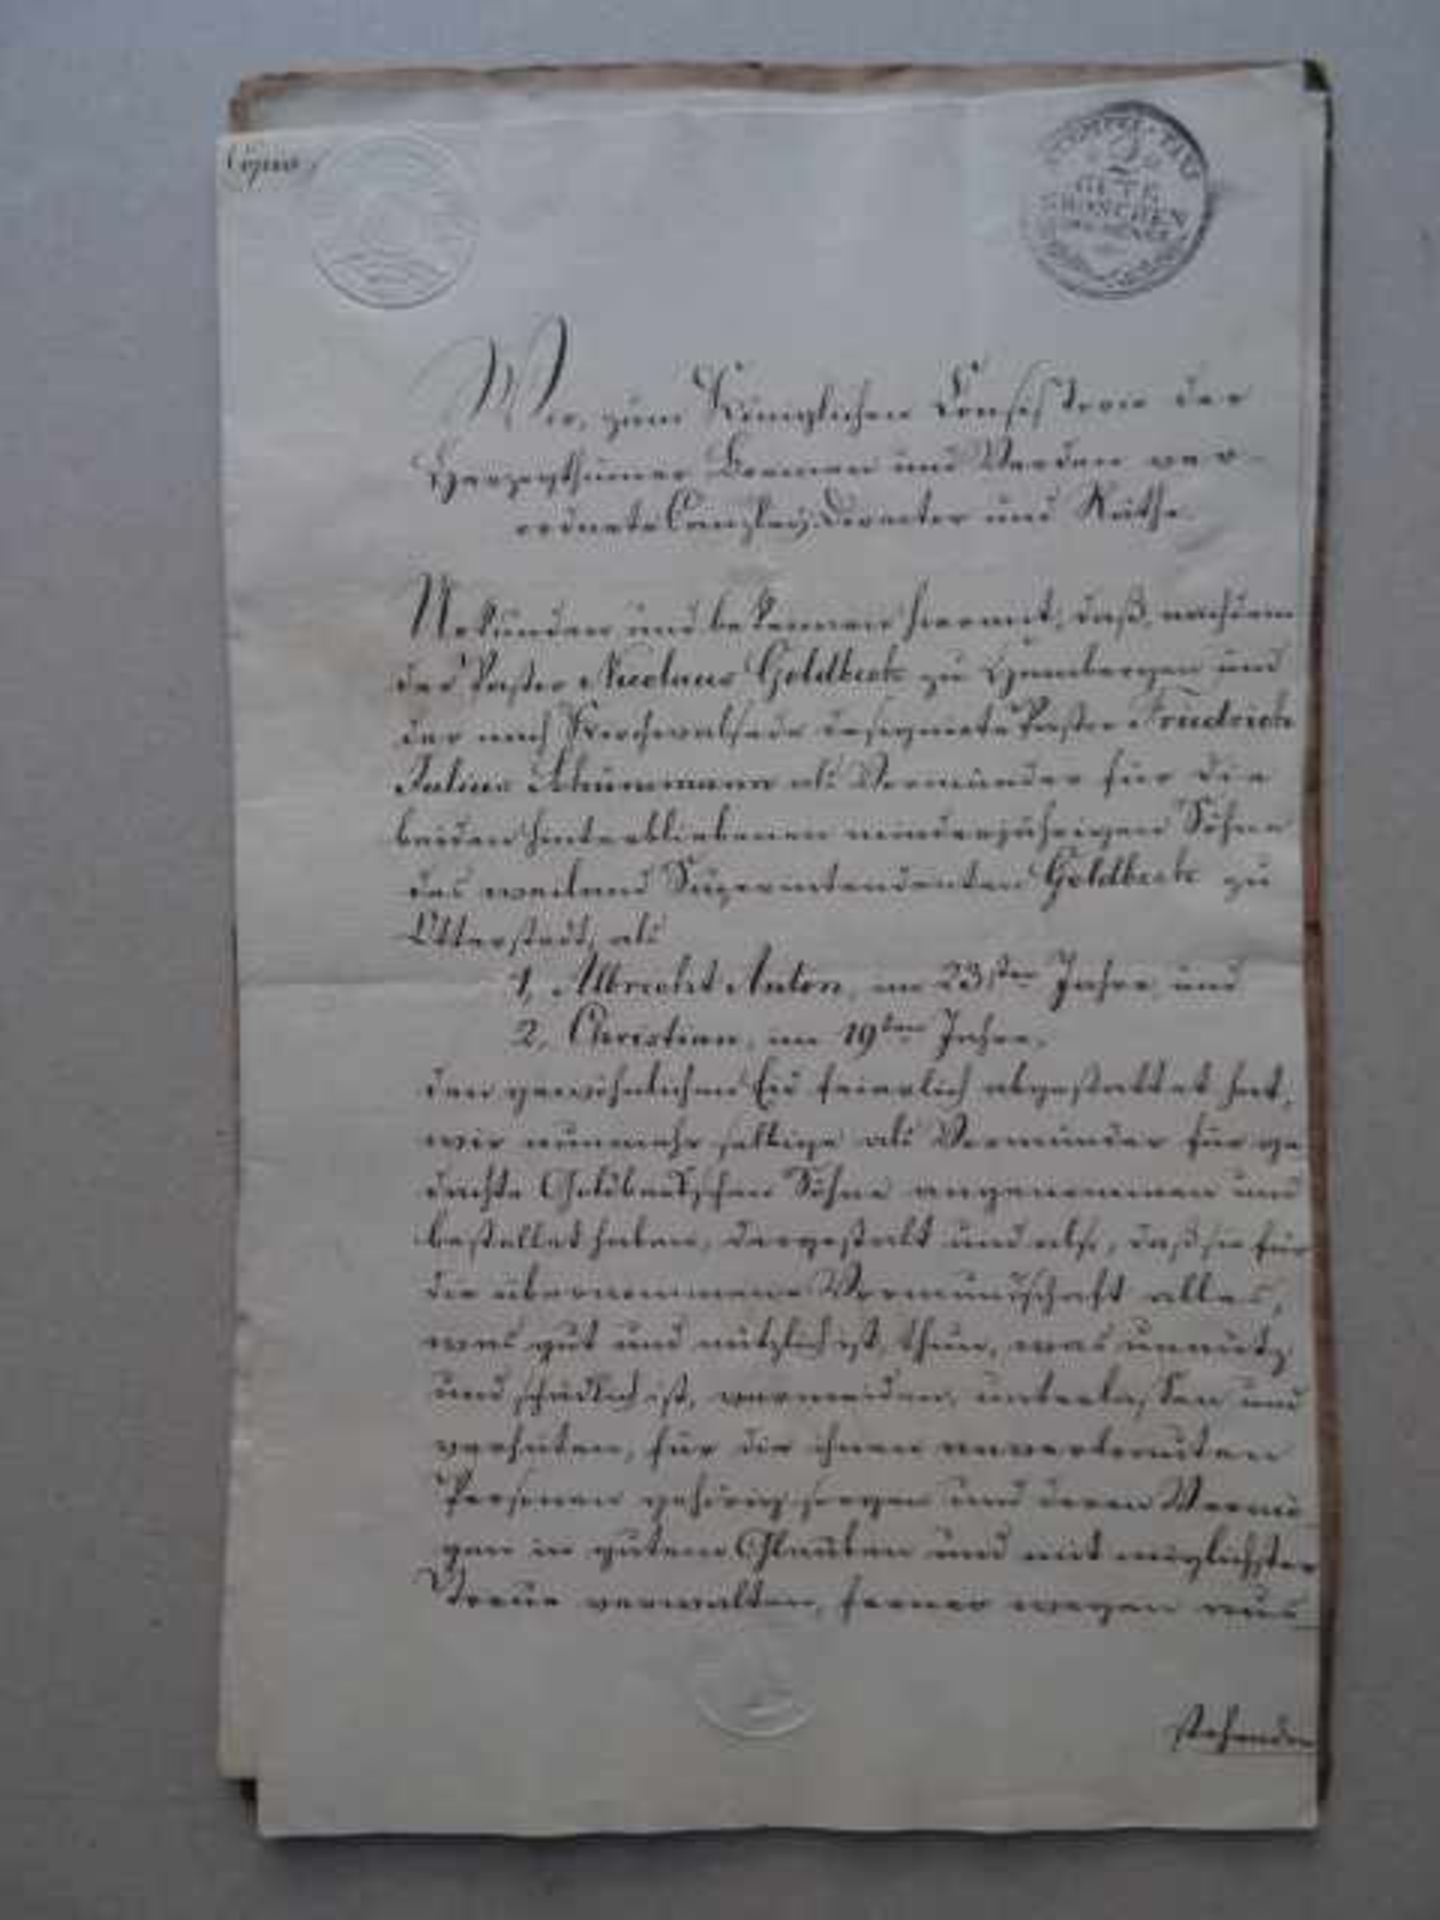 Copia
STEMPEL-TAXE
2
GUTE
GROSCHEN
Wir, zum Königlichen Consistorio der
Herzogthümer Bremen und Verden ver-
ordnete Canzley-Director und Räthe.
Urkunden und bekennen hiermit, daß, nachdem
der Pastor Nicolaus Goldbeck zu Hambergen und
der nach Kirchwalsede designirte Pastor Friedrich
Julius Schünemann als Vormünder für die
beiden hinterbliebenen minderjährigen Söhne
des weiland Superintendenten Goldbeck zu
Otterstedt, als
1, Albrecht Anton, im 23sten Jahre, und
2, Christian, im 19ten Jahre,
den gewöhnlichen Eid feierlich abgestattet hat,
wir nunmehr selbige als Vormünder für ge
dachte Goldbeckschen Söhne angenommen und
bestellet haben, dergestalt und also, daß sie für
die übernommene Vormundschaft alles,
was gut und nützlich ist, thun, was unnütz
und schädlich ist, vermeiden, unterlassen und
verhüten, für die ihnen anvertrauten
Personen gehörig sorgen und deren Vermö
gen in gutem Glauben und mit möglichster
Treue verwalten, ferner wegen aus
stehenden